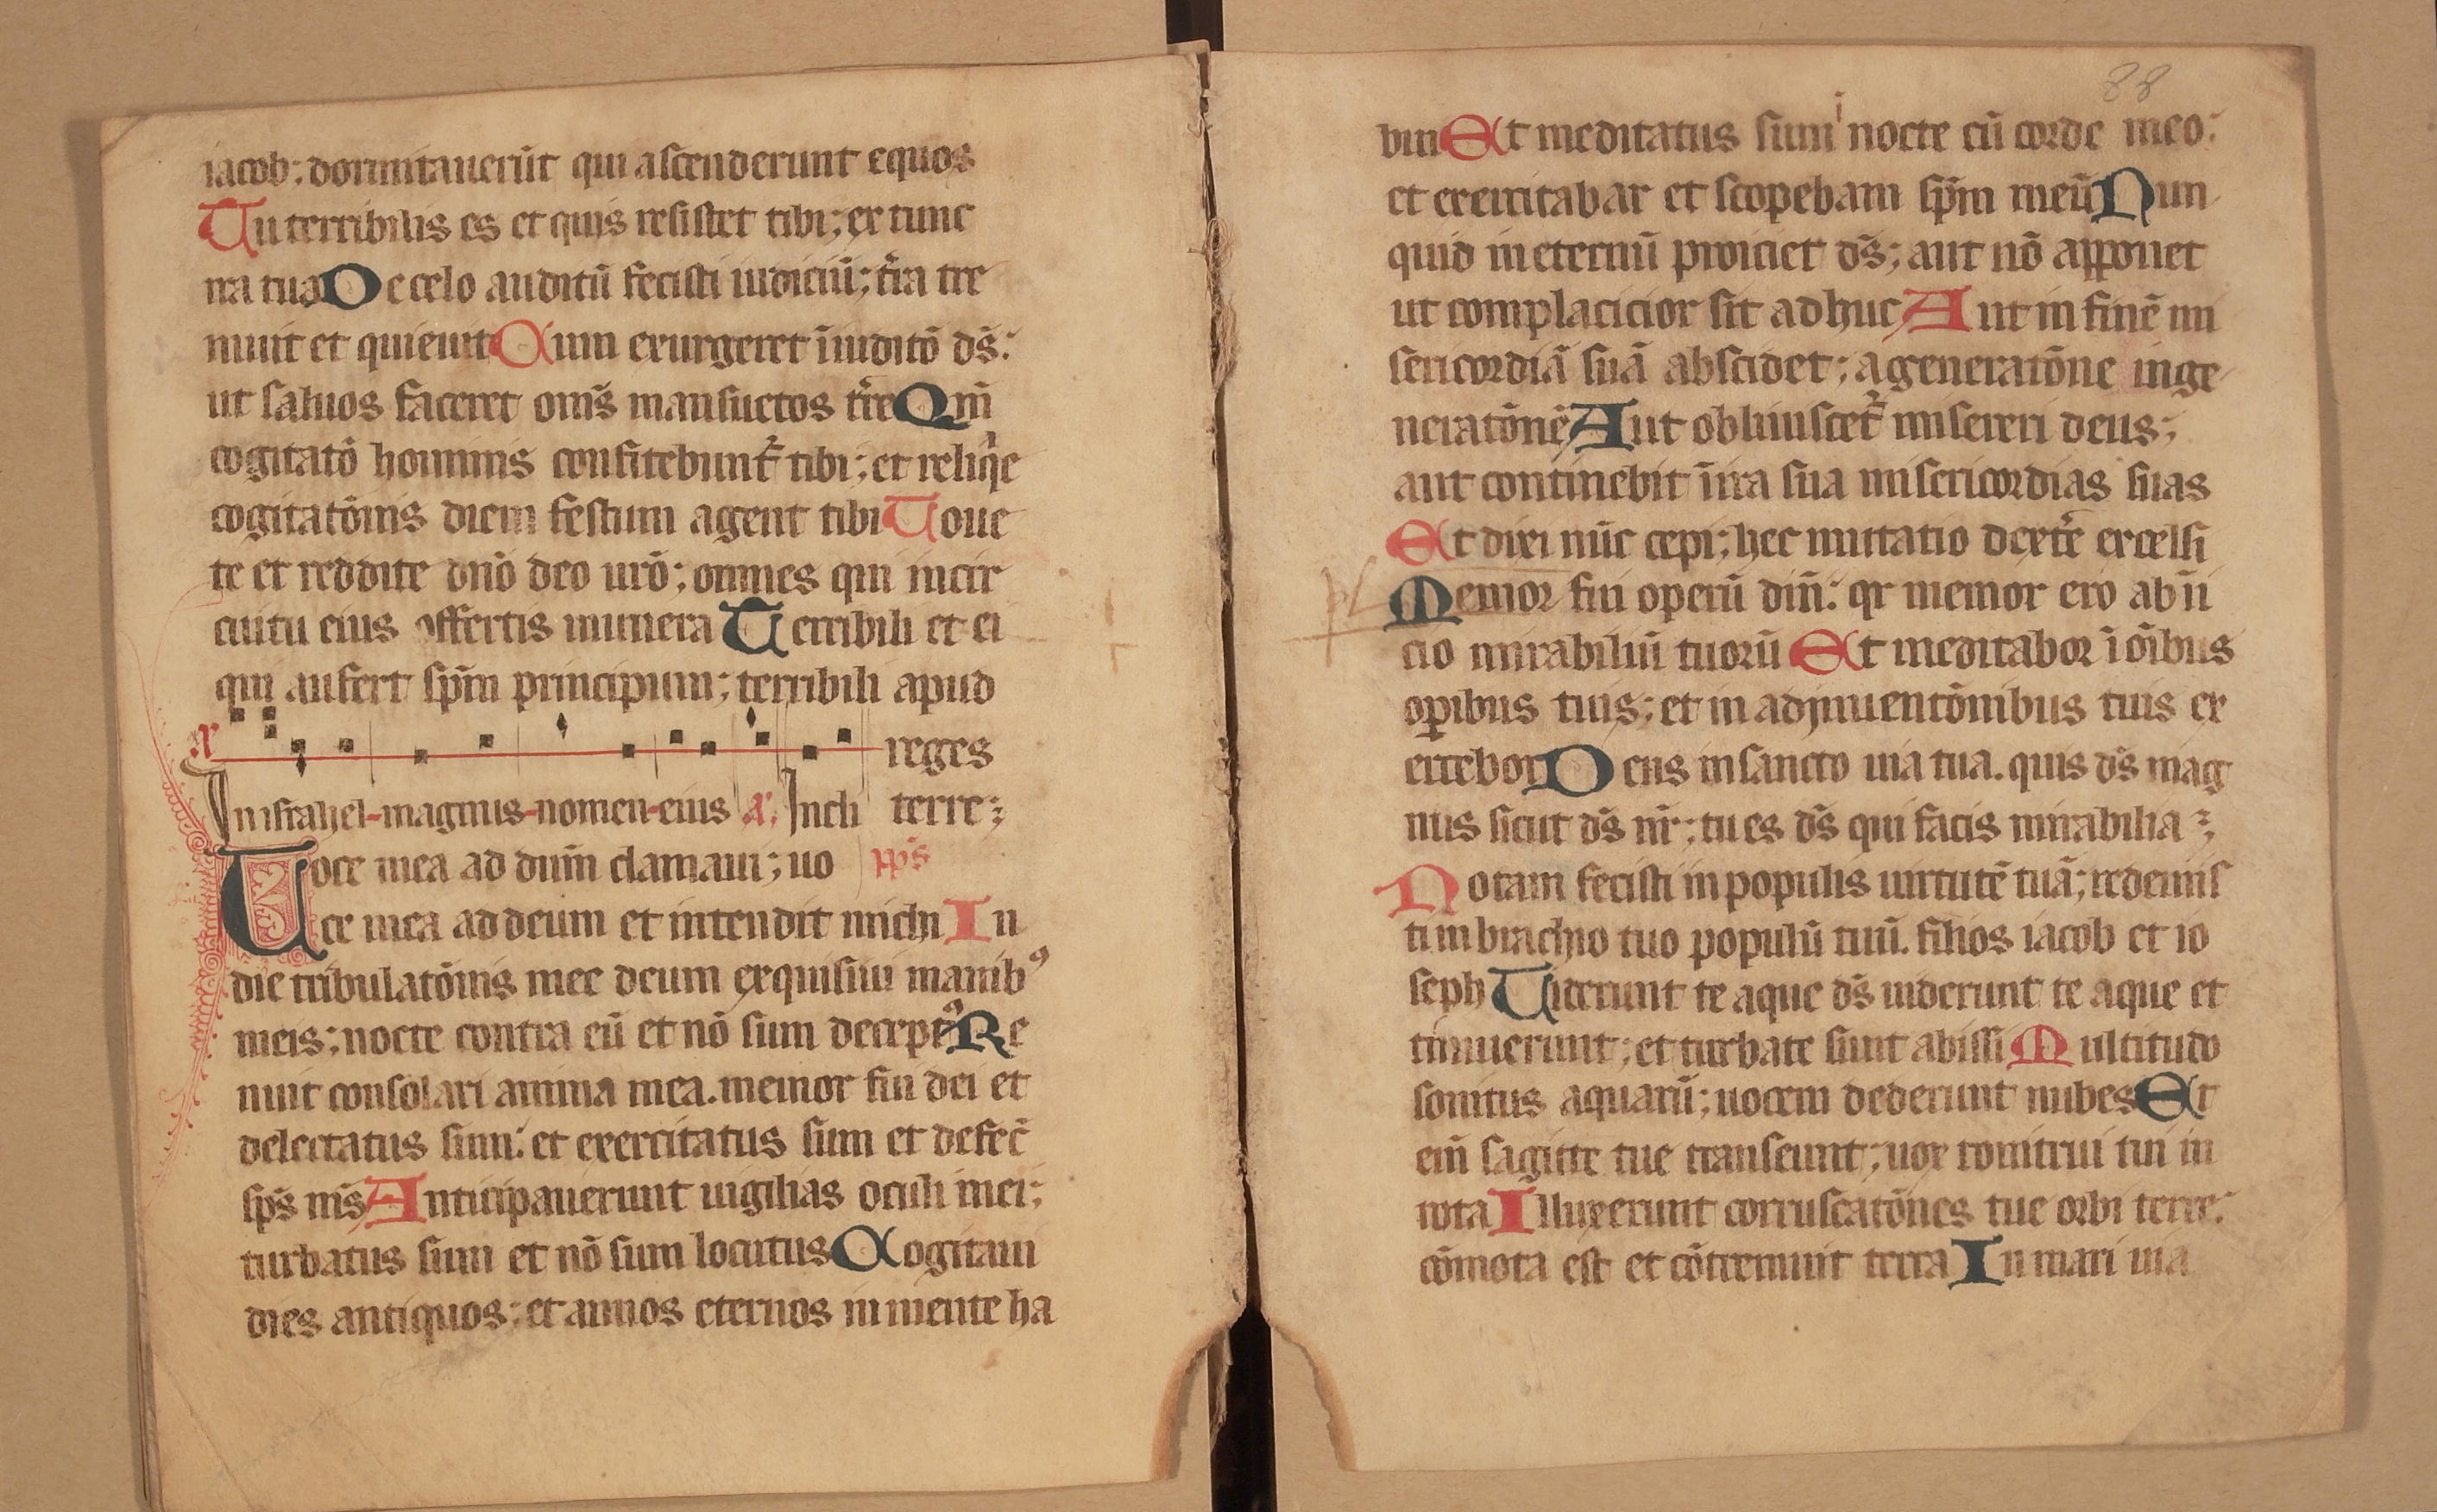 iacob; dormitauerūt qui ascenderunt equos
Tu terribilis es et quis resistet tibi; ex tunc
ira tua De celo auditū fecisti iudiciū; t̄ra tre
muit et quieuit Cum exurgeret ī iuditō ds̄:
ut saluos faceret om̄s mansuetos tr̄e Qm̄
cogitatō hominis confitebunt᷑ tibi; et reliqͥe
cogitatōnis diem festum agent tibi Uoue
te et reddite dnō deo urō; omnes qui in cir
cuitu eius offertis munera Terribili et ei
qui aufert sp̄m principum; terribili apud
reges
In israhel-magnus-nomen-eius a. Incli terre;
Uoce mea ad dūm clamaui; uo pps̄
ce mea ad deum et intendit michi In
die tribulatōnis mee deum exquisiui manibꝰ
meis; nocte contra eū et nō sum deceptꝰ Re
nuit consolari anima mea. memor fui dei et
delectatus sum: et exercitatus sum et defec̄
sps̄ ms̄ Anticipauerunt uigilias oculi mei;
turbatus sum et nō sum locutus Cogitaui
dies antiquos; et annos eternos in mente ha
88
bui Et meditatus sum nocte cū corde meo:
et exercitabar et scopebam sp̄m meū Nun
quid in eternū proiciet ds̄; aut nō apponet
ut complacicior sit adhuc Aut in finē mi
sericordiā suā abscidet; a generatōne in ge
neratōnē Aut obliuiscet᷑ misereri deus;
aut continebit ī ira sua misericordias suas
Et dixi nūc cepi; hec mutatio dextr̄e excelsi
Memor fui operū din̄: qr memor ero ab īi
cio mirabiliū tuorū Et meditabor ī ōibus
oꝑibus tuis; et in adjnuentōnibus tuis ex
ercebor Deus in sancto uia tua. quis ds̄ mag
nus sicut ds̄ nr̄; tu es ds̄ qui facis mirabilia;
Notam fecisti in populis uirtutē tuā; redemis
ti in brachio tuo populū tuū. filios iacob et io
seph Uiderunt te aque ds̄ uiderunt te aque et
timuerunt; et turbate sunt abissi Multitudo
sonitus aquarū; uocem dederunt nubes Et
em̄ sagitte tue transeunt; uox tonitrui tui in
rota Illuxerunt corruscatōnes tue orbi terre:
cōmota est et cōtremuit terra In mari uia